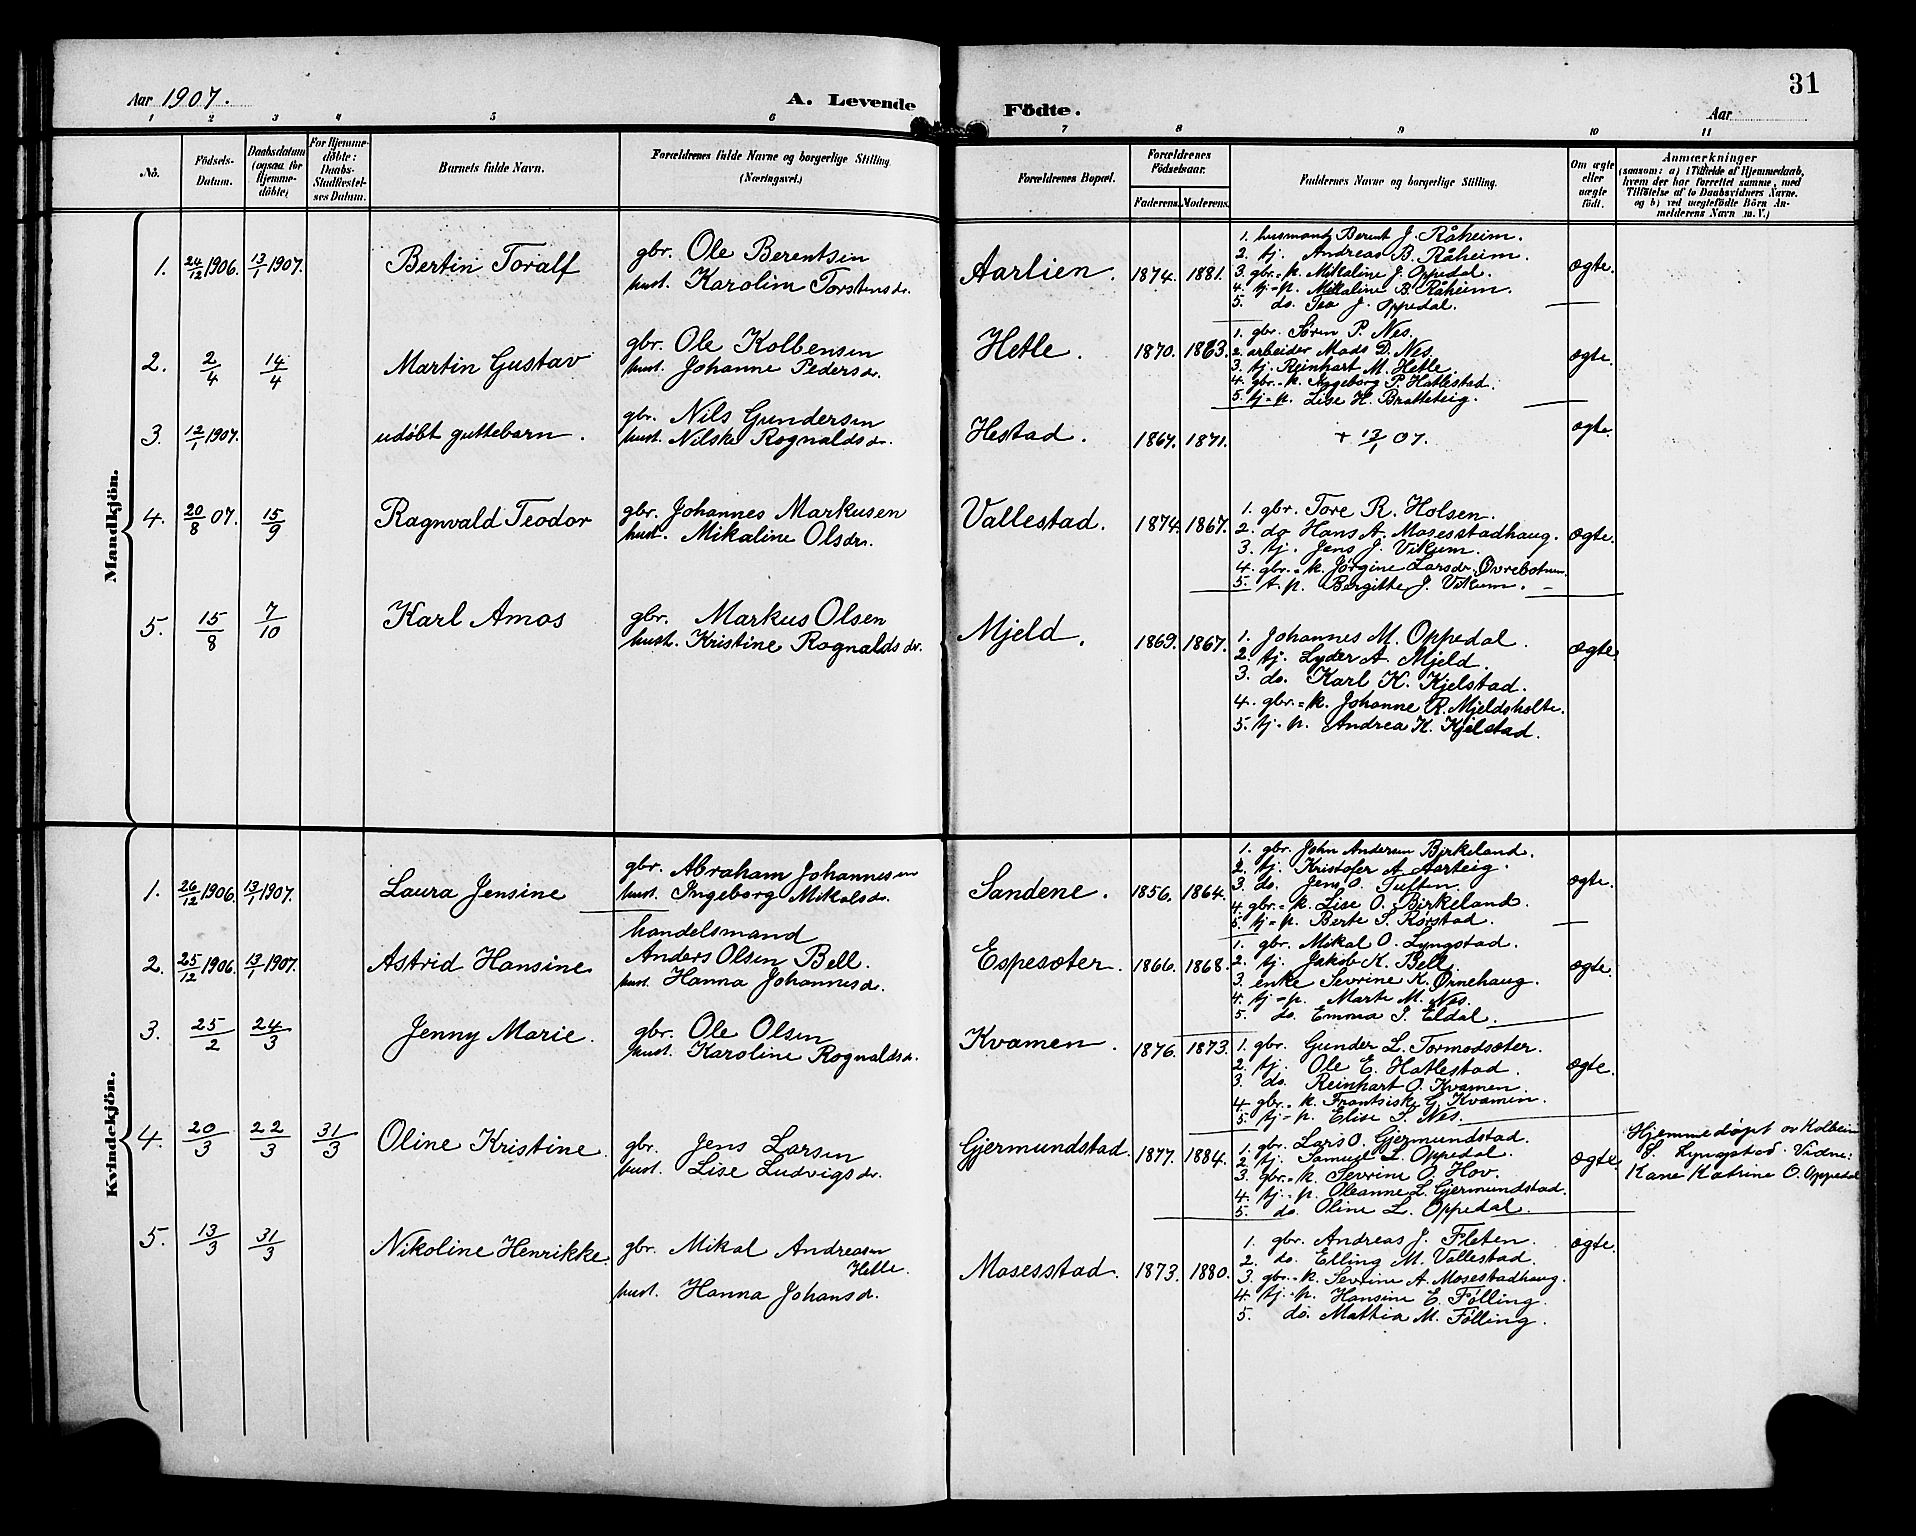 31
Aar 1907.
A. Levende Födte.
Aar
1 2 3 4 5 6 7 8 9 10 11
No.
Födsels-Datum.
Daabsdatum (ogsaa for Hjemme-döbte)
For Hjemme-döbte: Daabs-Stadfæstel-ses Datum.
Barnets fulde Navn.
Forældrenes fulde Navne og borgerlige Stilling. (Næringsvei.)
Forældrenes Bopæl.
Forældrenes Födselsaar.
Faderens. Moderens.
Faddernes Navne og borgerlige Stilling.
Om ægte eller uægte födt.
Anmærkninger
(saasom: a) i Tilfælde af Hjemmedaab,
hvem der har forrettet samme, med
Tilföielse af to Daabsvidners Navne.
og b) ved uægtefödte Börn An-
melderens Navn m. V.)
Mandkjön.
1. 24/12 1906. 13/1 1907. Bertin Toralf
gbr. Ole Berentsen
hust. Karoline Torstensdr.
Aarlien. 1874. 1881.
1. husmand Berent J. Råheim.
2. tj. Andreas B. Råheim.
3. gbr.-k. Mikaline J. Oppedal.
4. tj-p. Mikaline B. Råheim.
5. do. Tea J. Oppedal.
ægte.
2. 2/4 14/4 Martin Gustav
gbr. Ole Kolbensen
hust. Johanne Pedersdr.
Hetle. 1870. 1863.
1. gbr. Søren P. Nes.
2. arbeider Mads D. Nes.
3. tj. Reinhart M. Hetle.
4. gbr.-k. Ingeborg P. Hatlestad.
5. tj-p. Lise H. Bratteteig.
ægte.
3. 12/1 1907. udöbt guttebarn.
gbr. Nils Gundersen
hust. Nilske Rognaldsdr.
Hestad. 1867. 1871.
+ 13/1 07.
ægte.
4. 20/8 07. 15/9 Ragnvald Teodor
gbr. Johannes Markusen
hust. Mikaline Olsdr.
Vallestad. 1874. 1867.
1. gbr. Tore R. Holsen.
2. do Hans A. Mosesstadhaug.
3. tj. Jens J. Vikum.
4. gbr.-k. Jørgine Larsdr. Øvrebotnen.
5. t. p. Bergitte J. Vikum.
ægte.
5. 15/8 7/10 Karl Amos
gbr. Markus Olsen
hust. Kristine Rognaldsdr.
Mjeld. 1869. 1867.
1. Johannes M. Oppedal.
2. tj. Lyder A. Mjeld.
3. do. Karl K. Kjelstad.
4. gbr.-k. Johanne R. Mjeldsholte.
5. tj-p. Andrea K. Kjelstad.
ægte.
Kvindekjön.
1. 26/12 1906. 13/1 1907. Laura Jensine
gbr. Abraham Johannesen
hust. Ingeborg Mikalsdr.
Sandene. 1856. 1864.
1. gbr. John Andersen Birkeland.
2. tj. Kristofer A Aarteig.
3. do. Jens O. Tuften.
4. gbr.-k. Lise O. Birkeland.
5. tj-p. Berte S. Rørstad.
ægte.
2. 25/12 1906. 13/1 1907. Astrid Hansine
handelsmand
Anders Olsen Bell.
hust. Hanna Johannesdr.
Espesæter. 1866. 1868.
1. gbr. Mikal O. Lyngstad.
2. tj. Jakob K. Bell.
3. enke Sevrine K. Ørnehaug.
4. tj-p. Marte M. Nes.
5. do. Emma I. Eldal.
ægte.
3. 25/2 24/3 Jenny Marie.
gbr. Ole Olsen
hust. Karoline Rognaldsdr.
Kvamen. 1876. 1873.
1. gbr. Gunder L. Tormodsæter.
2. tj. Ole E. Hatlestad.
3. do. Reinhart O. Kvamen.
4. gbr.-k. Frantsiske G. Kvamen.
5. tj-p. Elise S. Nes.
ægte.
4. 20/3 22/3 31/3 Oline Kristine
gbr. Jens Larsen
hust. Lise Ludvigsdr.
Gjermundstad. 1877. 1884.
1. gbr. Lars O. Gjermundstad.
2. tj. Samuel L. Oppedal.
3. gbr.-k. Sevrine O. Hov.
4. tj.-p. Oleanne L. Gjermundstad.
5. do. Oline L. Oppedal.
ægte.
Hjemmedøpt av Kolbein
S. Lyngstad. Vidne:
Kane Katrine O. Oppedal
5. 13/3 31/3 Nikoline Henrikke.
gbr. Mikal Andreasen
Hetle.
hust. Hanna Johansdr.
Mosesstad. 1873. 1880.
1. gbr. Andreas J. Fleten.
2. do. Elling M. Vallestad.
3. gbr.-k. Sevrine A. Mosestadhaug.
4. tj.-p. Hansine E. Følling.
5. do. Mathia M. Følling.
ægte.